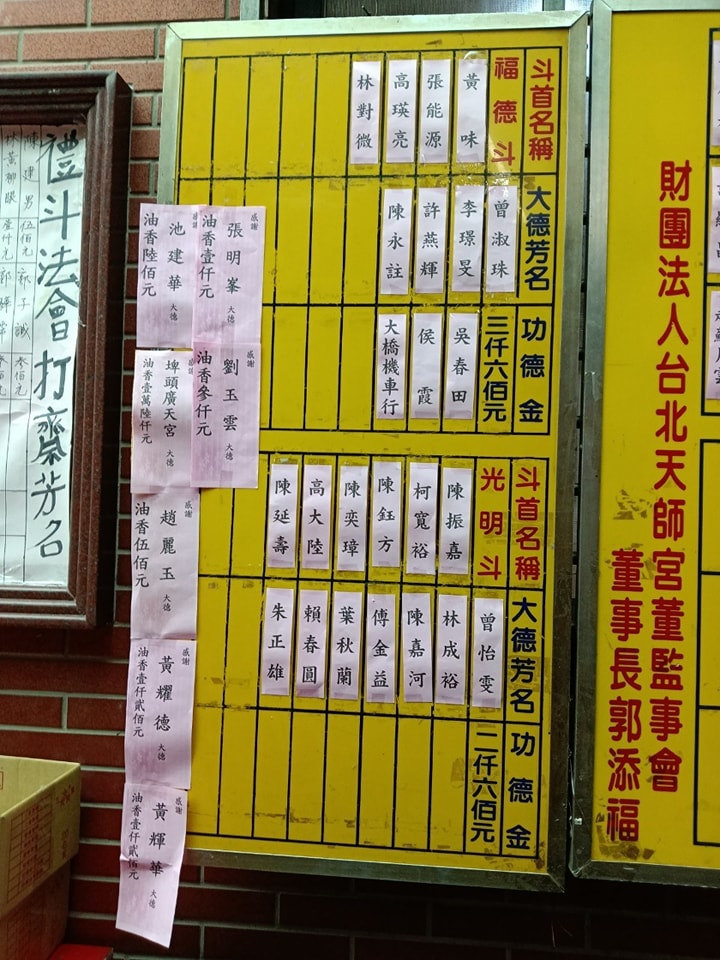 財團法人台北天師宮董監事會
董事長郭添福
斗首名稱
福德斗
黃味
張能源
高瑛亮
林對微
大德芳名
曾淑珠
李璟旻
許燕輝
陳永註
功德金
三仟六佰元
吳春田
侯霞
大橋機車行
斗首名稱
光明斗
陳振嘉
柯寬裕
陳鈺方
陳奕璋
高大陸
陳延壽
大德芳名
曾怡雯
林成裕
陳嘉河
傅金益
葉秋蘭
賴春圓
朱正雄
功德金
二仟六佰元
感謝
張明峯大德
油香壹仟元
感謝
池建華大德
油香陸佰元
感謝
劉玉雲大德
油香參仟元
感謝
埤頭廣天宮大德
油香壹萬陸仟元
感謝
趙麗玉大德
油香伍佰元
感謝
黃耀德大德
油香壹仟貳佰元
感謝
黃輝華大德
油香壹仟貳佰元
禮斗法會打齋芳名
陳建男伍佰元